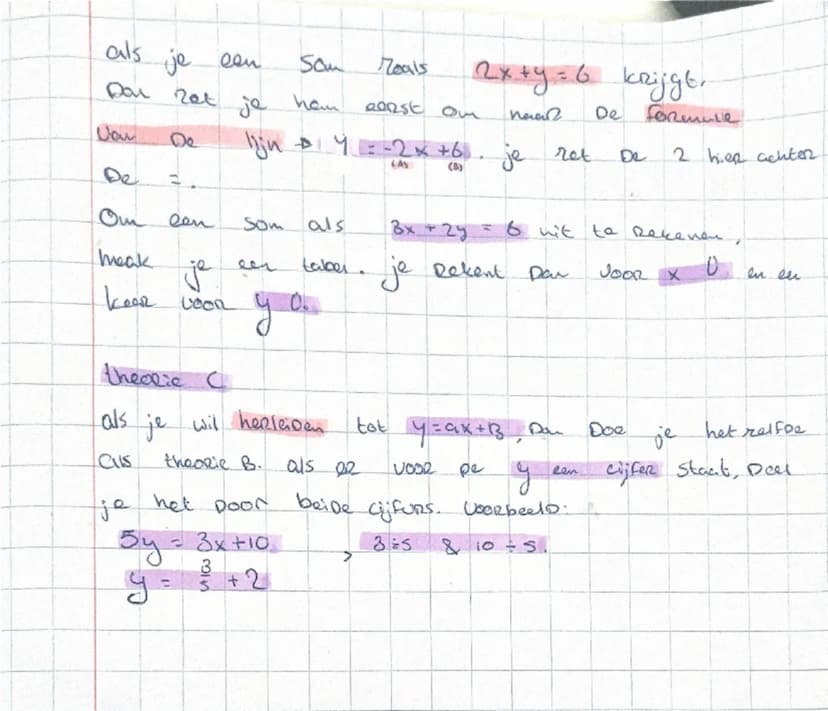 als je een som zoals 2x+y=6 krijgt.
Dan zet je hem eerst om naar De formule
Van De lijn → y = -2x +6. je zet De 2 hier achter
(A) (B)
De =.
Om een som als 3x + 2y = 6 uit te rekenen,
maak je een tabel. je rekent Dan voor x 0 en een
keer voor y 0.
theorie C
als je wil herleiden tot y=ax+B, Dan Doe je het zelfde
als theorie B. als er voor de y een cijfer staat, Deel
je het Door beide cijfers. Voorbeeld:
5y = 3x+10 , 3÷5 & 10 ÷ 5.
y = 3/5 + 2